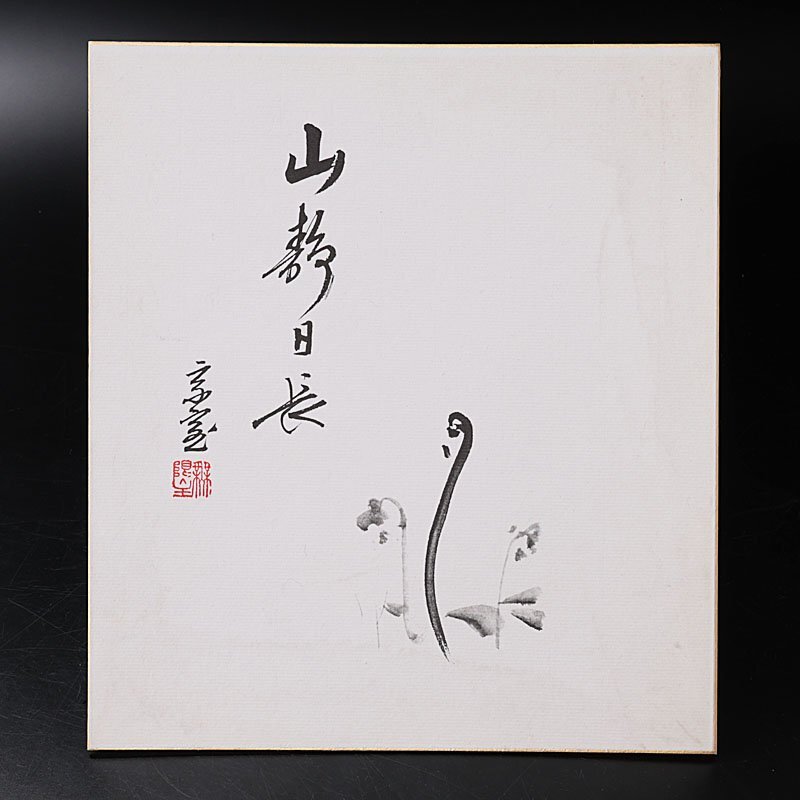 山静日長